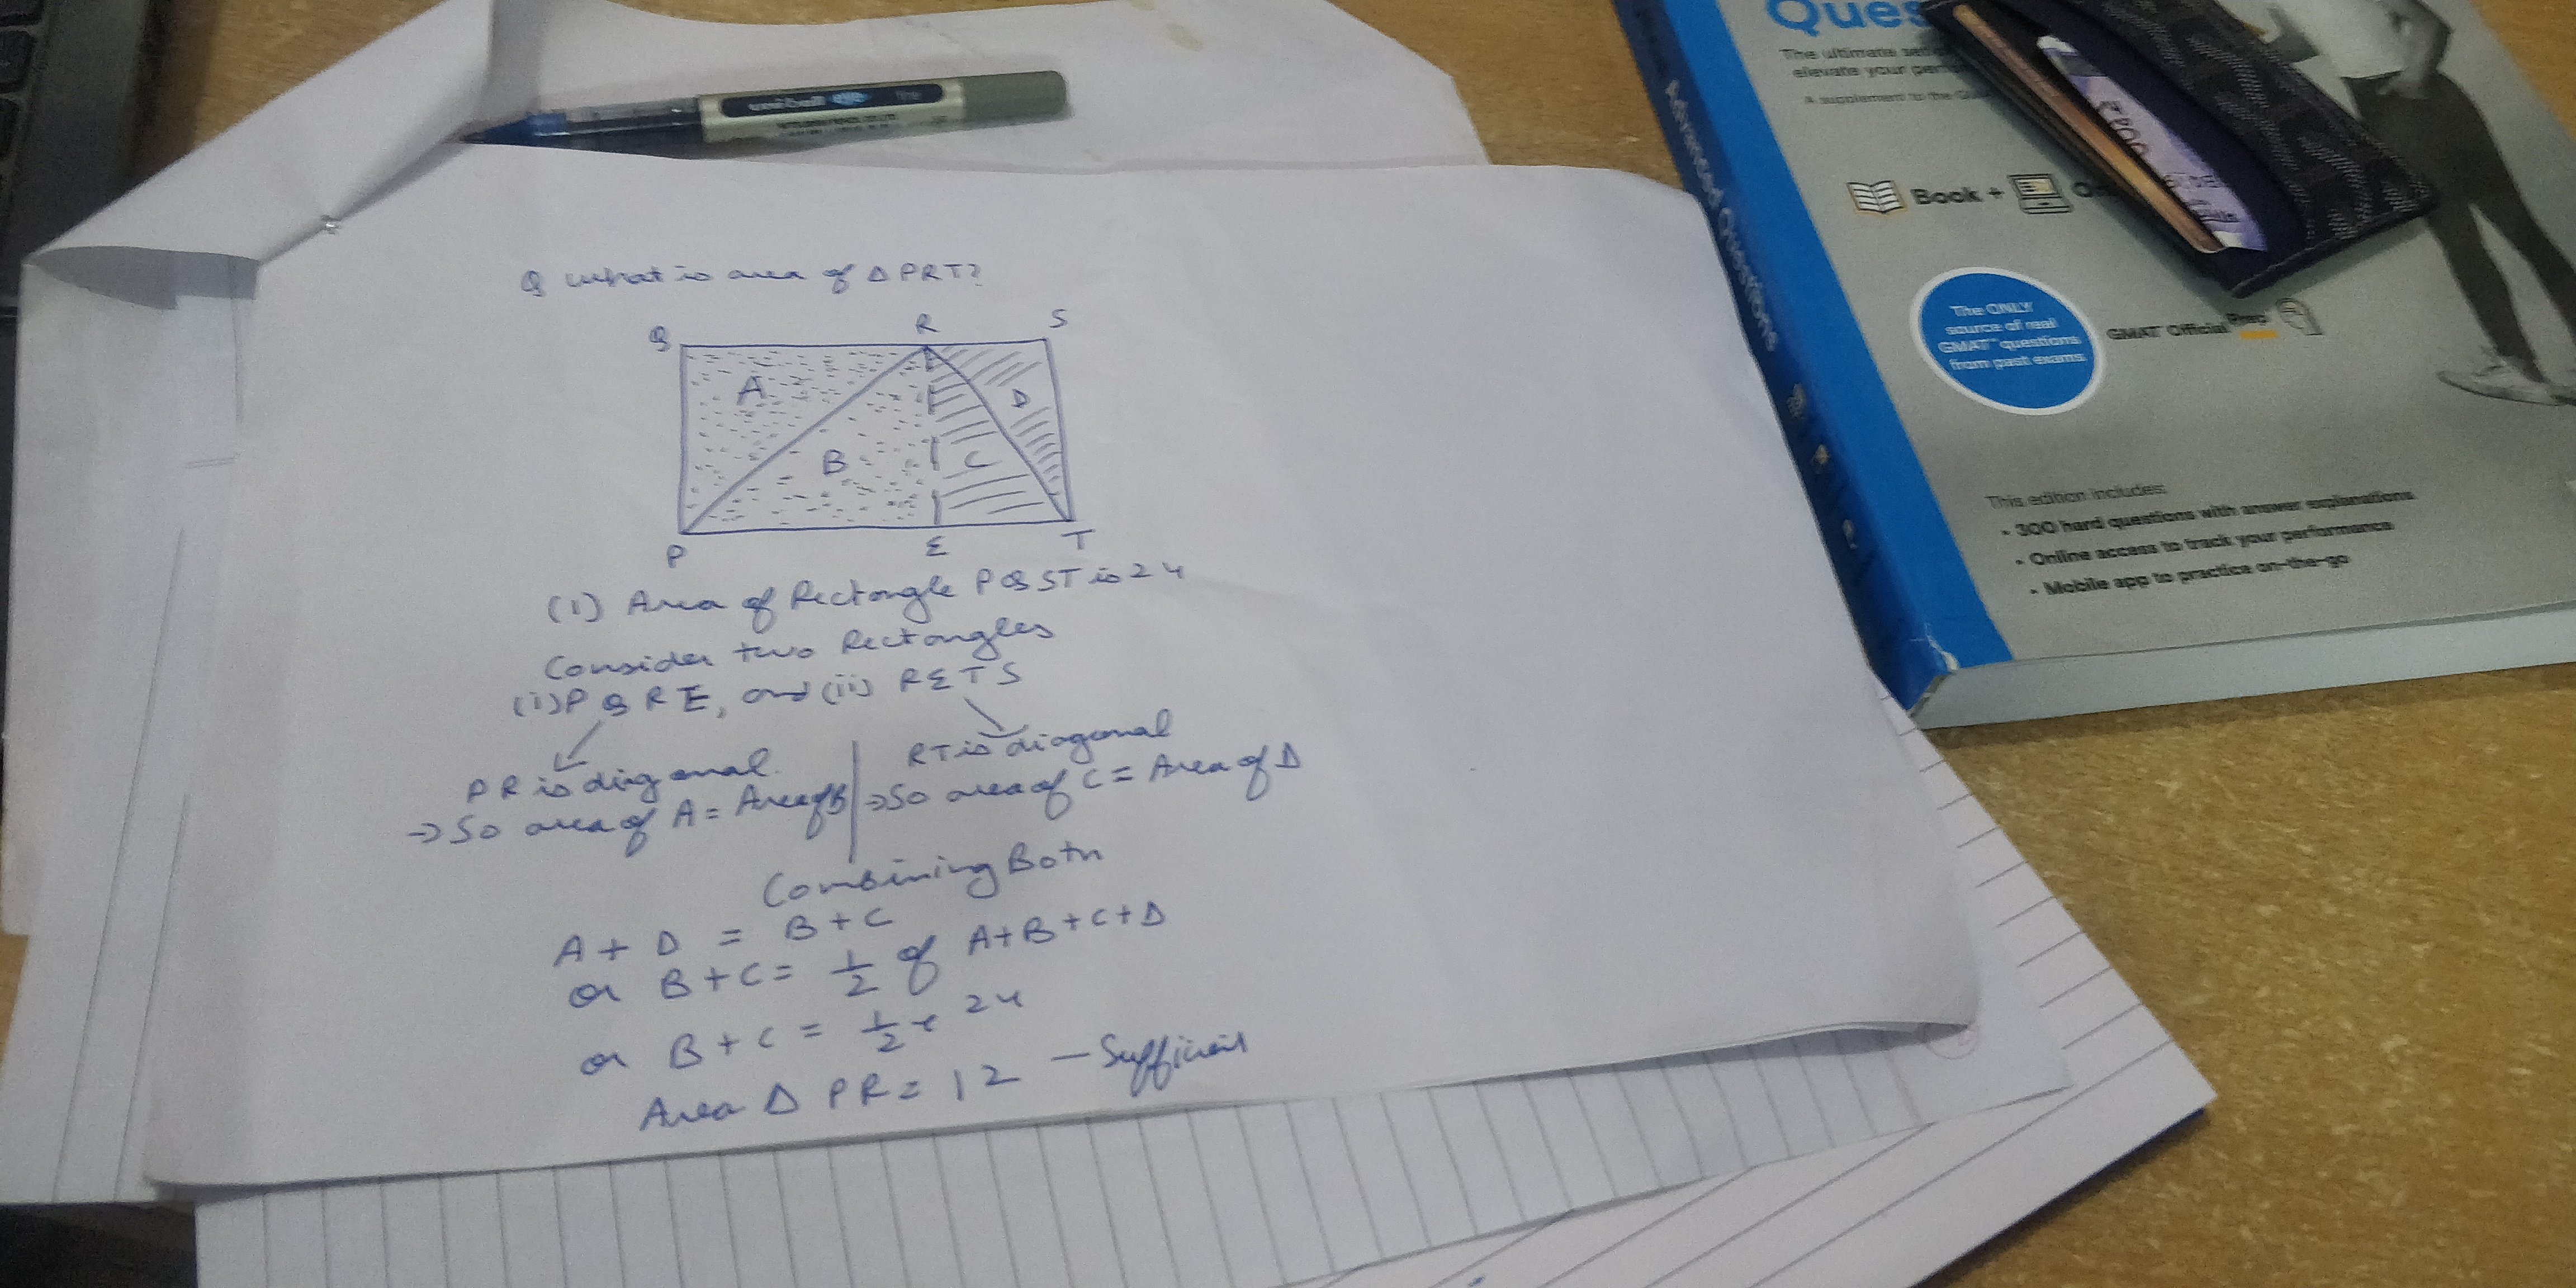 Q what is area of Δ PRT?
Q R S
A D
B C
P E T
(1) Area of Rectangle PQST is 24
Consider two Rectangles
(i) PQRE, and (ii) RETS
PR is diagonal
→ So area of A = Area of B
RT is diagonal
→ So area of C = Area of D
Combining Both
A + D = B + C
or B + C = 1/2 of A + B + C + D
or B + C = 1/2 × 24
Area Δ PR = 12 — Sufficient
uni-ball
eye
Ques
The ultimate
elevate your
A supplement to the
Book +
The ONLY
source of real
GMAT™ questions
from past exams
GMAT™ Official Prep
This edition includes:
• 300 hard questions with answer explanations
• Online access to track your performance
• Mobile app to practice on-the-go
Advanced Questions